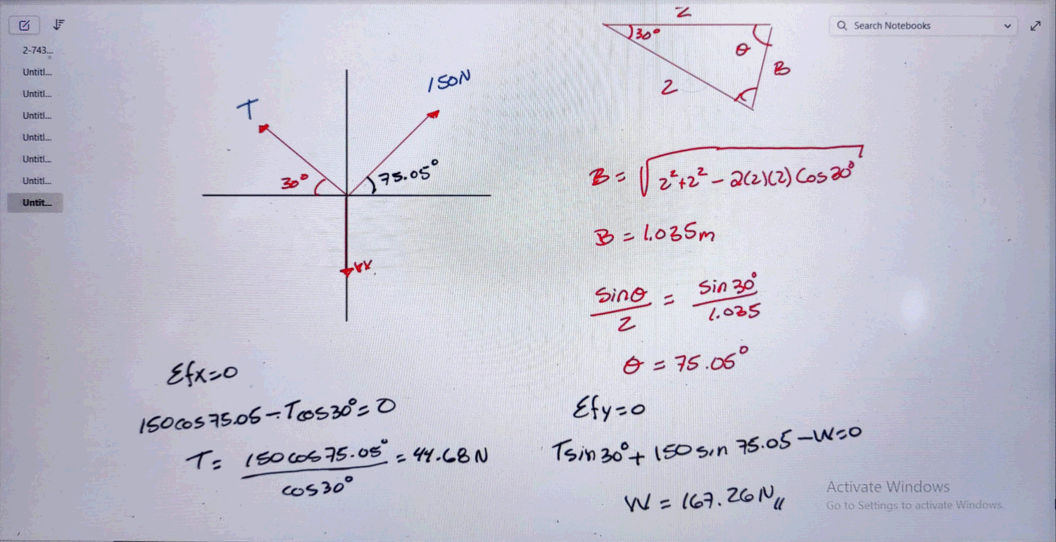 2-743...
Untitl...
Untitl...
Untitl...
Untitl...
Untitl...
Untitl...
Untit...
Search Notebooks
T
150N
30°
75.05°
W.
2
30°
θ
B
2
B = √2²+2² - 2(2)(2) Cos 30°
B = 1.035m
Sinθ/2 = Sin 30°/1.035
θ = 75.05°
Σfx=0
150cos75.05 - Tcos30° = 0
T = 150cos75.05°/cos30° = 44.68N
Σfy=0
Tsin30° + 150sin 75.05 - W=0
W = 167.26N,,
Activate Windows
Go to Settings to activate Windows.